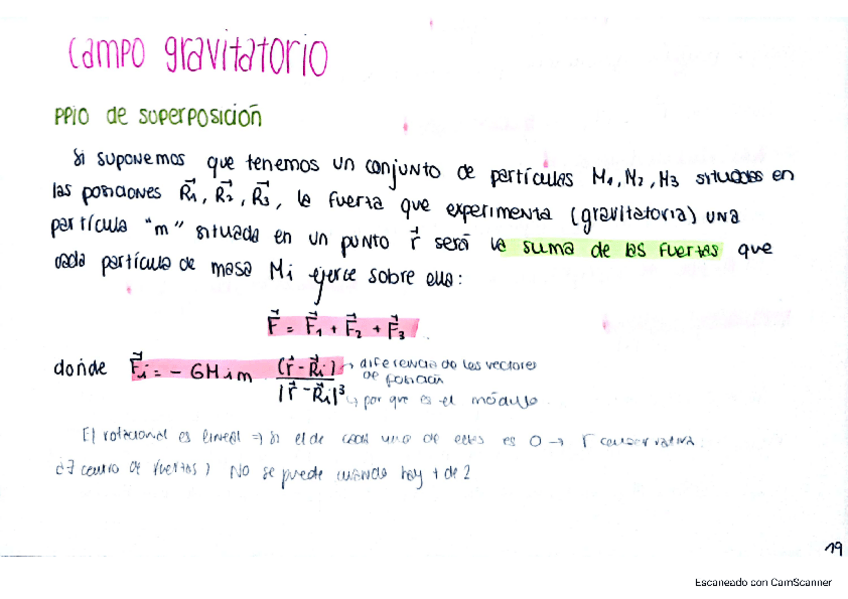 Campo gravitatorio
PPIO de superposición
Si suponemos que tenemos un conjunto de partículas M₁, M₂, M₃ situadas en
las posiciones R⃗₁, R⃗₂, R⃗₃, la fuerza que experimenta (gravitatoria) una
partícula "m" situada en un punto r⃗ será la suma de las fuerzas que
cada partícula de masa Mi ejerce sobre ella:
F⃗ = F⃗₁ + F⃗₂ + F⃗₃
donde F⃗i = - GMim (r⃗ - R⃗i) / |r⃗ - R⃗i|³
→ diferencia de los vectores
de posición
↳ por que es el módulo
El rotacional es lineal ⇒ Si el de cada uno de ellos es 0 → F conservativa.
¿∃ centro de fuerzas? No se puede cuando hay + de 2
19
Escaneado con CamScanner